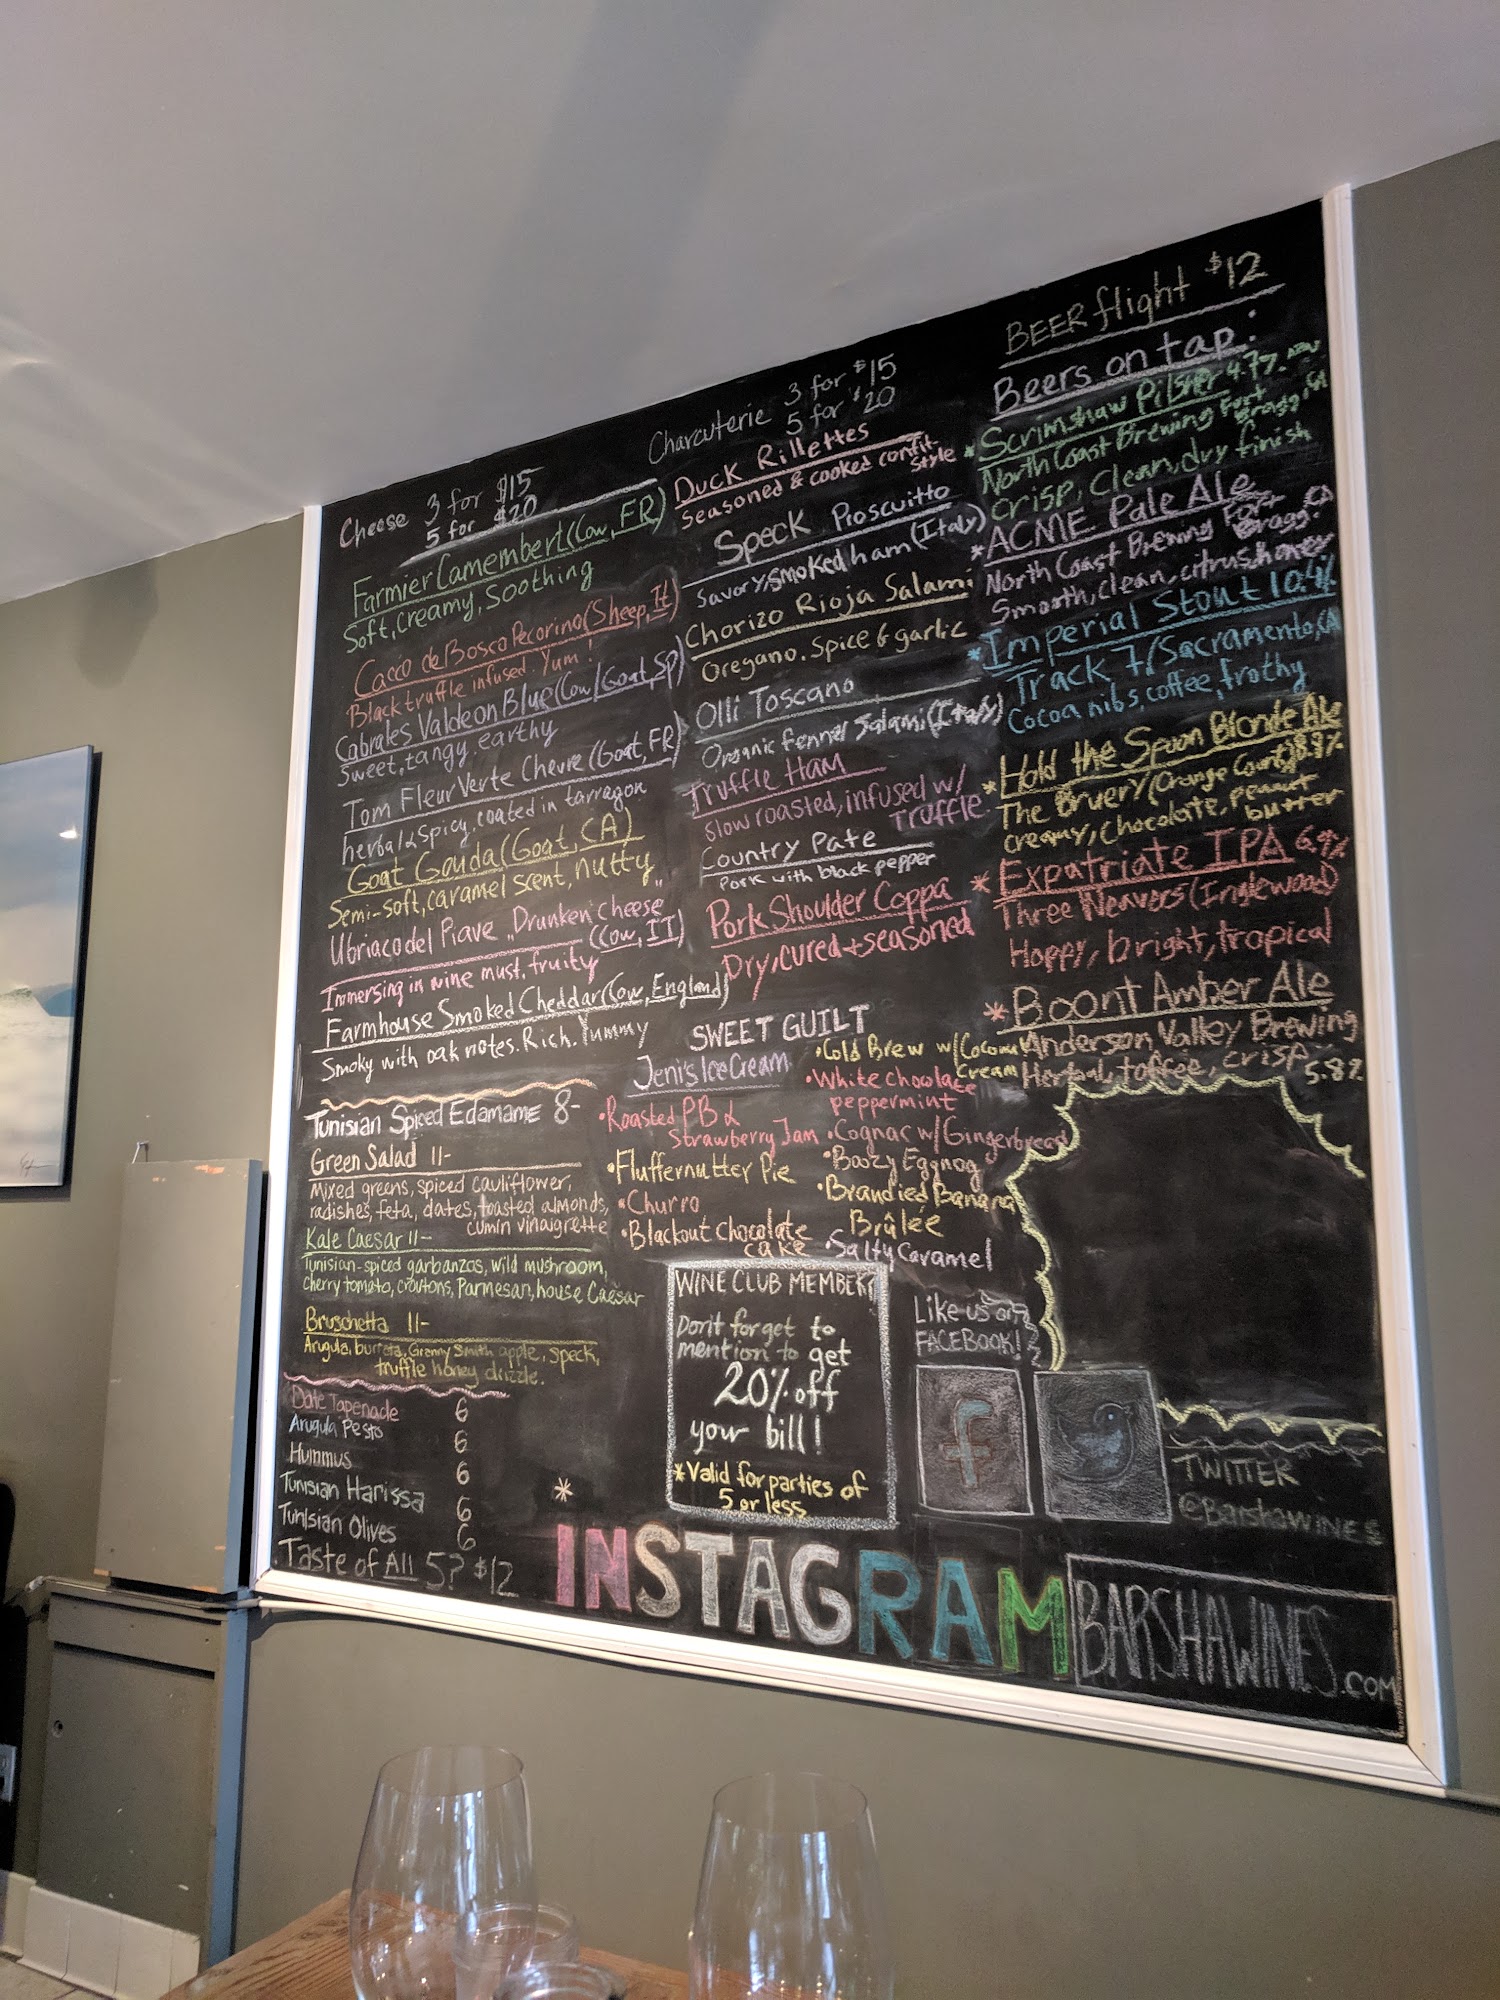 Cheese 3 for $15
5 for $20
Farmier Camembert (Cow, FR)
Soft, creamy, soothing
Cacio de Bosco Pecorino (Sheep, It)
Black truffle infused. Yum!
Cabrales Valdeon Blue (Cow/Goat, Sp)
Sweet, tangy, earthy
Tom Fleur Verte Chevre (Goat, FR)
herbal & Spicy, coated in tarragon
Goat Gouda (Goat, CA)
Semi-soft, caramel scent, nutty
Ubriaco del Piave "Drunken Cheese"
(Cow, IT)
Immersing in wine must, fruity
Farmhouse Smoked Cheddar (Cow, England)
Smoky with oak notes. Rich. Yummy
Tunisian Spiced Edamame 8-
Green Salad 11-
Mixed greens, spiced cauliflower,
radishes, feta, dates, toasted almonds,
cumin vinaigrette
Kale Caesar 11-
Tunisian-spiced garbanzos, wild mushroom,
cherry tomato, croutons, Parmesan, house Caesar
Bruschetta 11-
Arugula, burrata, Granny Smith apple, speck,
truffle honey drizzle.
Date Tapenade 6
Arugula Pesto 6
Hummus 6
Tunisian Harissa 6
Tunisian Olives 6
Taste of All 5? $12
Charcuterie 3 for $15
5 for $20
Duck Rillettes
Seasoned & cooked confit-
style
Speck Proscuitto
Savory, smoked ham (Italy)
Chorizo Rioja Salami
Oregano. Spice & garlic
Olli Toscano
Organic Fennel Salami (Italy)
Truffle Ham
Slow roasted, infused w/
Truffle
Country Pate
Pork with black pepper
Pork Shoulder Coppa
Dry, cured + seasoned
SWEET GUILT
Jeni's Ice Cream
•Roasted PB &
Strawberry Jam
•Fluffernutter Pie
•Churro
•Blackout chocolate
cake
•Cold Brew w/Coconut
Cream
•White chocolate
peppermint
•Cognac w/Gingerbread
•Boozy Eggnog
•Brandied Banana
Brûlée
•Salty Caramel
WINE CLUB MEMBER?
Don't forget to
mention to get
20% off
your bill!
*Valid for parties of
5 or less
BEER flight $12
Beers on tap:
*Scrimshaw Pilsner 4.7%
North Coast Brewing Fort
Bragg, CA
Crisp, Clean, dry finish
*ACME Pale Ale
North Coast Brewing Fort
Bragg, CA
Smooth, clean, citrus, honey
*Imperial Stout 10.4%
Track 7/Sacramento, CA
Cocoa nibs, coffee, frothy
*Hold the Spoon Blonde Ale
The Bruery/Orange County 8.9%
creamy, chocolate, peanut
butter
*Expatriate IPA 6.9%
Three Weavers (Inglewood)
Hoppy, bright, tropical
*Boont Amber Ale
Anderson Valley Brewing
Herbal, toffee, crisp 5.8%
Like us on
FACEBOOK!
f
TWITTER
@BarshaWINES
*
INSTAGRAM
BARSHAWINES.COM